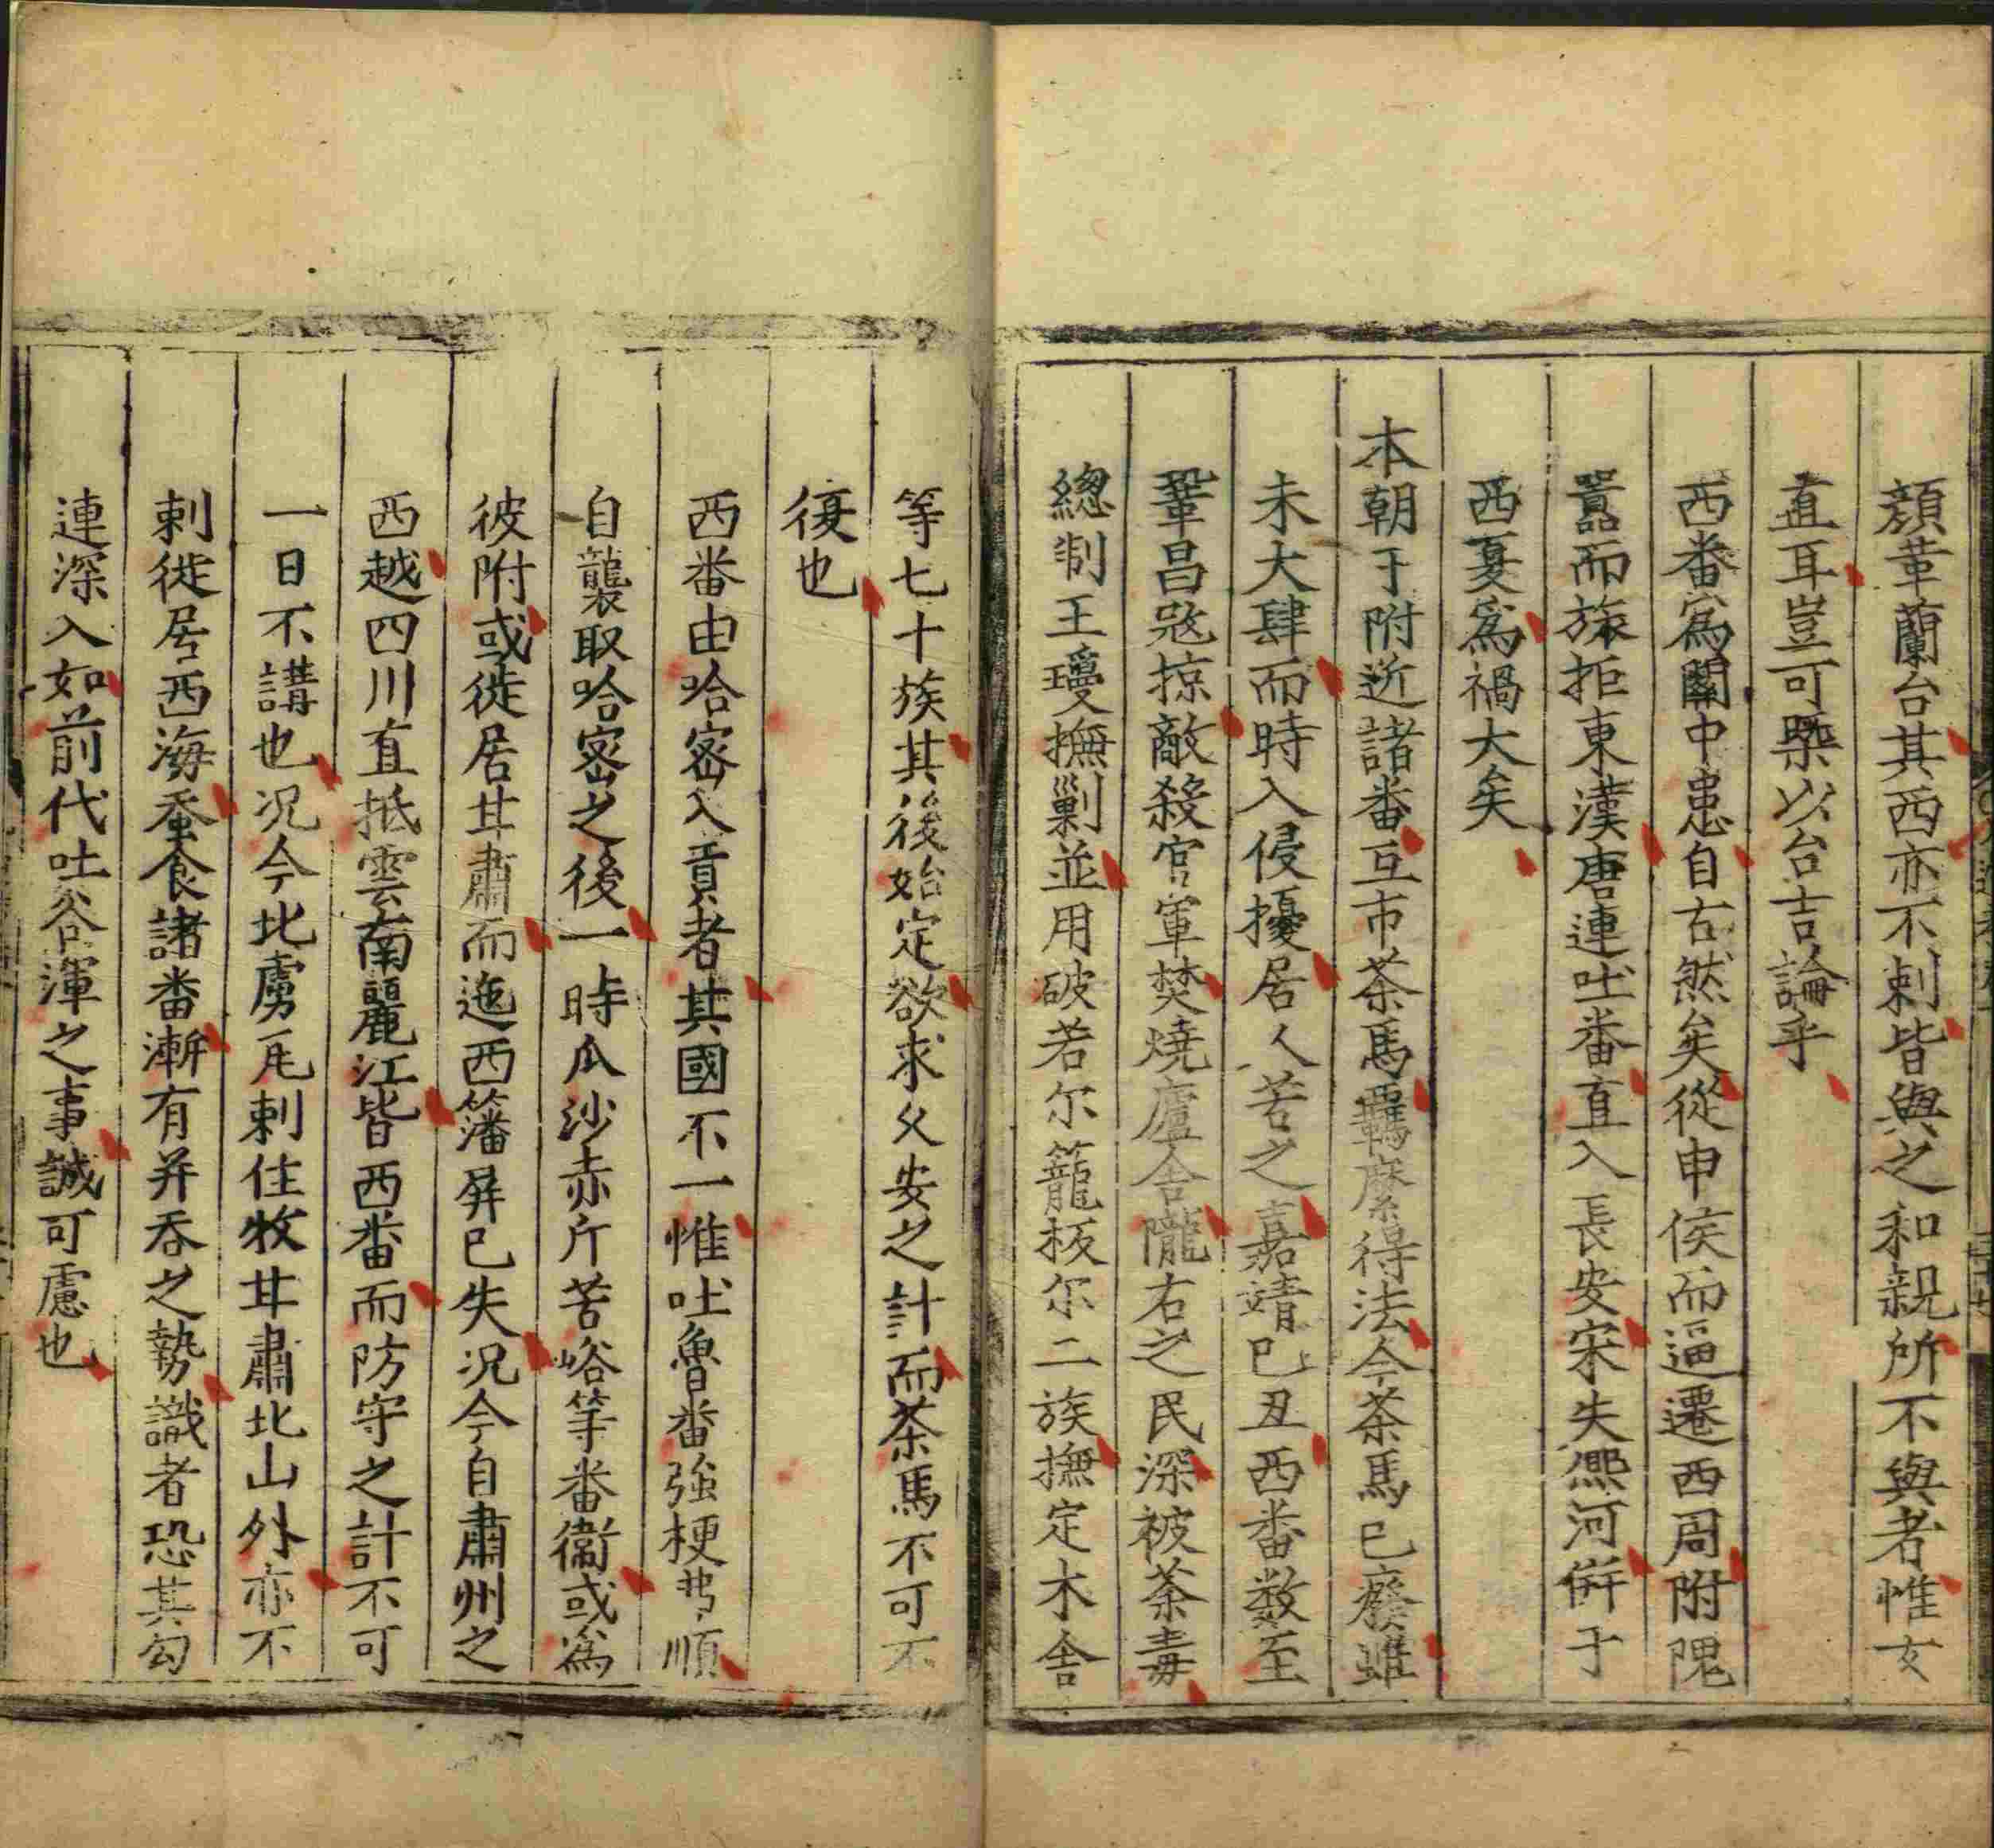 顏革蘭台其西亦不剌皆與之和親所不與者惟女
直耳豈可槩以台吉論乎
西番爲關中患自古然矣從申侯而逼遷西周附隗
囂而旅拒東漢唐連吐番直入長安宋失熈河併于
西夏爲禍大矣
本朝于附近諸番互市茶馬羈縻得法今茶馬已廢雖
未大肆而時入侵擾居人苦之嘉靖己丑西番数至
鞏昌宼掠敵殺官軍焚燒廬舍隴右之民深被荼毒
總制王瓊撫剿並用破若尔籠板尔二族撫定木舍
等七十族其後始定欲求久安之計而茶馬不可不
復也
西番由哈宻入貢者其國不一惟吐魯番強梗弗順
自襲取哈宻之後一時瓜沙赤斤苦峪等番衞或爲
彼附或徙居甘肅而迤西籓屏已失况今自肅州之
西越四川直抵雲南麗江皆西番而防守之計不可
一日不講也况今北虜瓦剌住牧甘肅北山外亦不
剌徙居西海蚕食諸番漸有并吞之勢識者恐其勾
連深入如前代吐谷渾之事誠可慮也